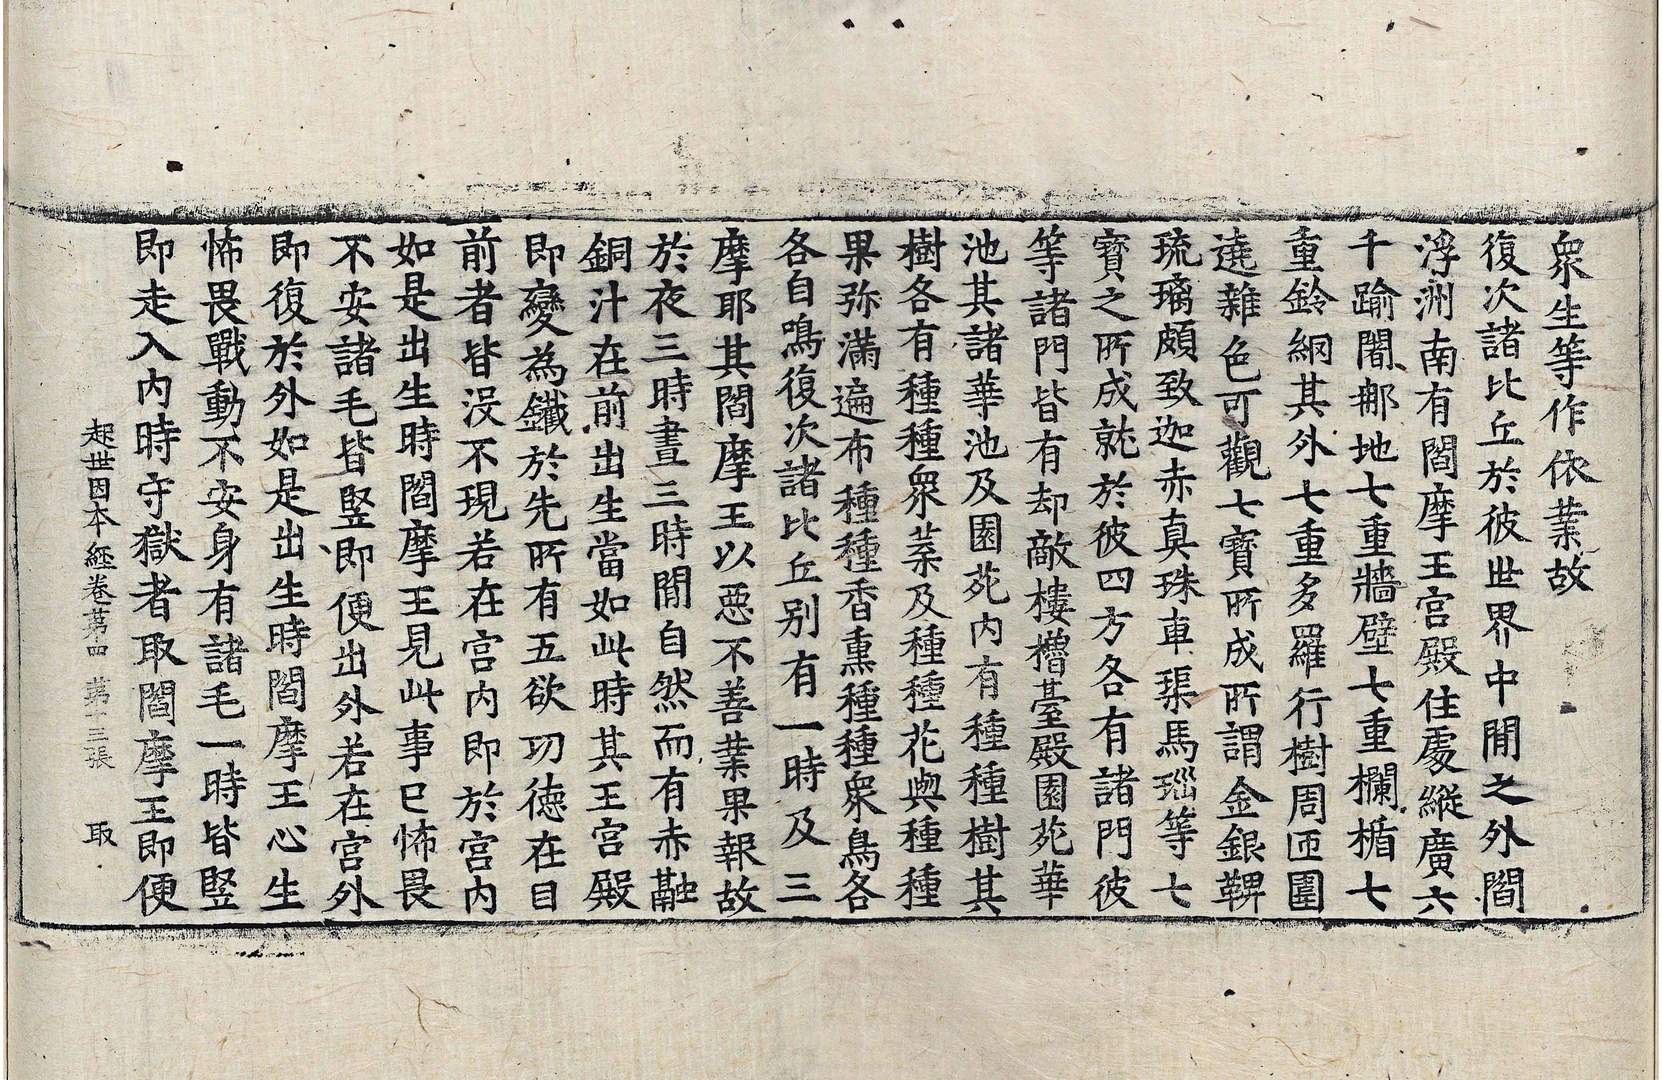 衆生等作依業故
復次諸比丘於彼世界中閒之外閻
浮洲南有閻摩王宫殿住處縱廣六
千踰闍那地七重牆壁七重欄楯七
重鈴網其外七重多羅行樹周匝圍
遶雜色可觀七寶所成所謂金銀鞞
琉璃頗致迦赤真珠車𤦲馬瑙等七
寶之所成就於彼四方各有諸門彼
等諸門皆有却敵樓櫓臺殿園苑華
池其諸華池及園苑内有種種樹其
樹各有種種衆葉及種種花與種種
果弥滿遍布種種香熏種種衆鳥各
各自鳴復次諸比丘别有一時及三
摩耶其閻摩王以惡不善業果報故
於夜三時晝三時閒自然而有赤融
銅汁在前出生當如此時其王宫殿
即變為鐵於先所有五欲功德在目
前者皆没不現若在宫内即於宫内
如是出生時閻摩王見此事已怖畏
不安諸毛皆竪即便出外若在宫外
即復於外如是出生時閻摩王心生
怖畏戰動不安身有諸毛一時皆竪
即走入内時守獄者取閻摩王即便
起世因本經卷第四 第十三張 取